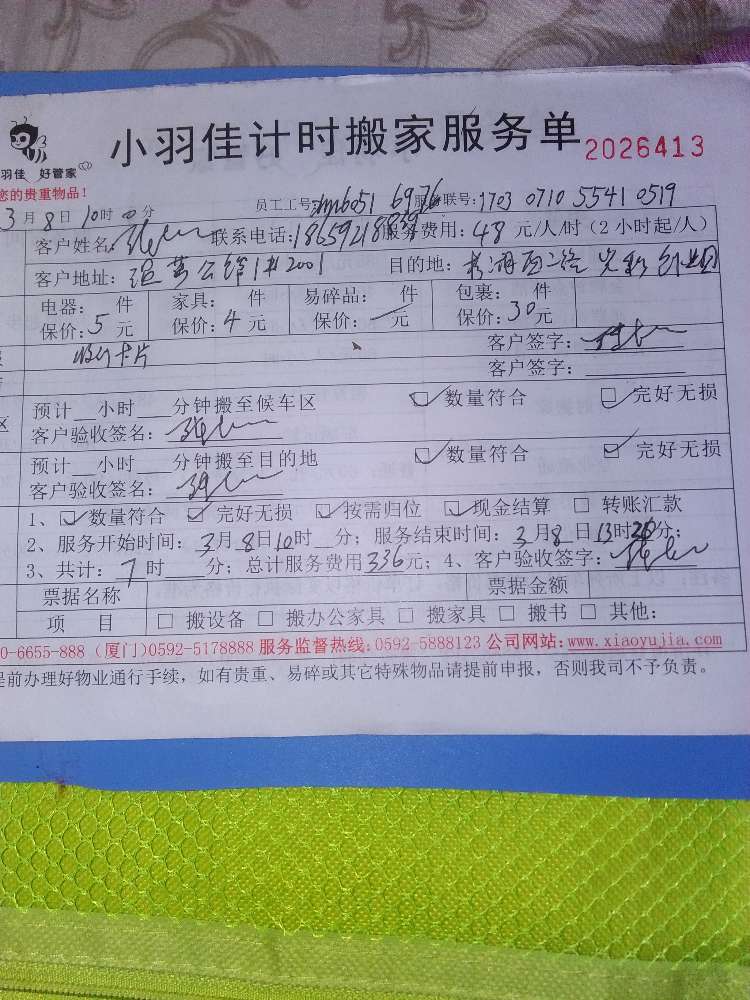 小羽佳计时搬家服务单 2026413
羽佳 好管家
您的贵重物品!
3月8日10时0分 员工工号: 6051 6976 服务联号: 1703 0710 5541 0519
客户姓名: 联系电话: 服务费用: 48 元/人/时(2小时起/人)
客户地址: 公馆1#2001 目的地:
电器: 件 家具: 件 易碎品: 件 包裹: 件
保价: 5元 保价: 4元 保价: 一元 保价: 30元
客户签字:
卡片
客户签字:
预计 小时 分钟搬至候车区 ☑数量符合 ☑完好无损
客户验收签名:
预计 小时 分钟搬至目的地 ☑数量符合 ☑完好无损
客户验收签名:
1、☑数量符合 ☑完好无损 ☑按需归位 ☑现金结算 □转账汇款
2、服务开始时间: 3月8日10时 分; 服务结束时间: 3月8日13时 分;
3、共计: 7时 分; 总计服务费用336元; 4、客户验收签字:
票据名称 票据金额
项 目 □搬设备 □搬办公家具 □搬家具 □搬书 □其他:
0-6655-888 (厦门)0592-5178888 服务监督热线:0592-5888123 公司网站: www.xiaoyujia.com
前办理好物业通行手续,如有贵重、易碎或其它特殊物品请提前申报,否则我司不予负责。